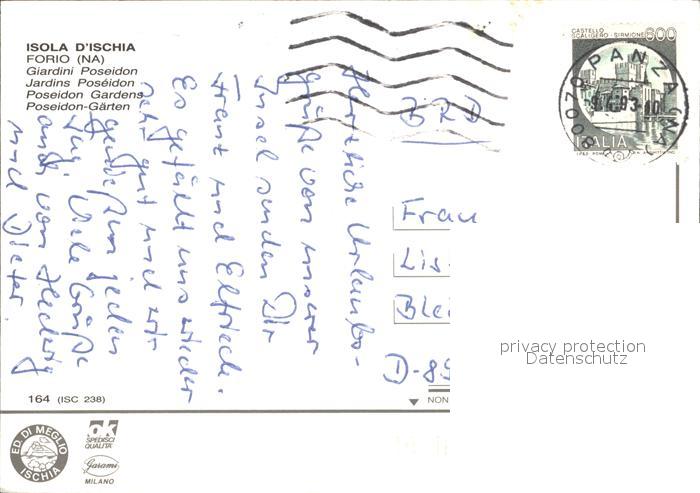 ISOLA D'ISCHIA
FORIO (NA)
Giardini Poseidon
Jardins Poséidon
Poseidon Gardens
Poseidon-Gärten
Herzliche Urlaubs-
grüße von unserer
Insel senden Dir
Franz und Elfriede.
Es gefällt uns wieder
sehr gut und wir
genießen jeden
Tag. Viele Grüße
auch von Hedwig
und Dieter.
BRD
Frau
Lis
Blei
D-89
CASTELLO
SCALIGERO - SIRMIONE
600
ITALIA
80070 PANZA (NA)
164 (ISC 238)
NON
ED. DI MEGLIO
ISCHIA
ok
SPEDISCI
QUALITÀ
Garami
MILANO
privacy protection
Datenschutz